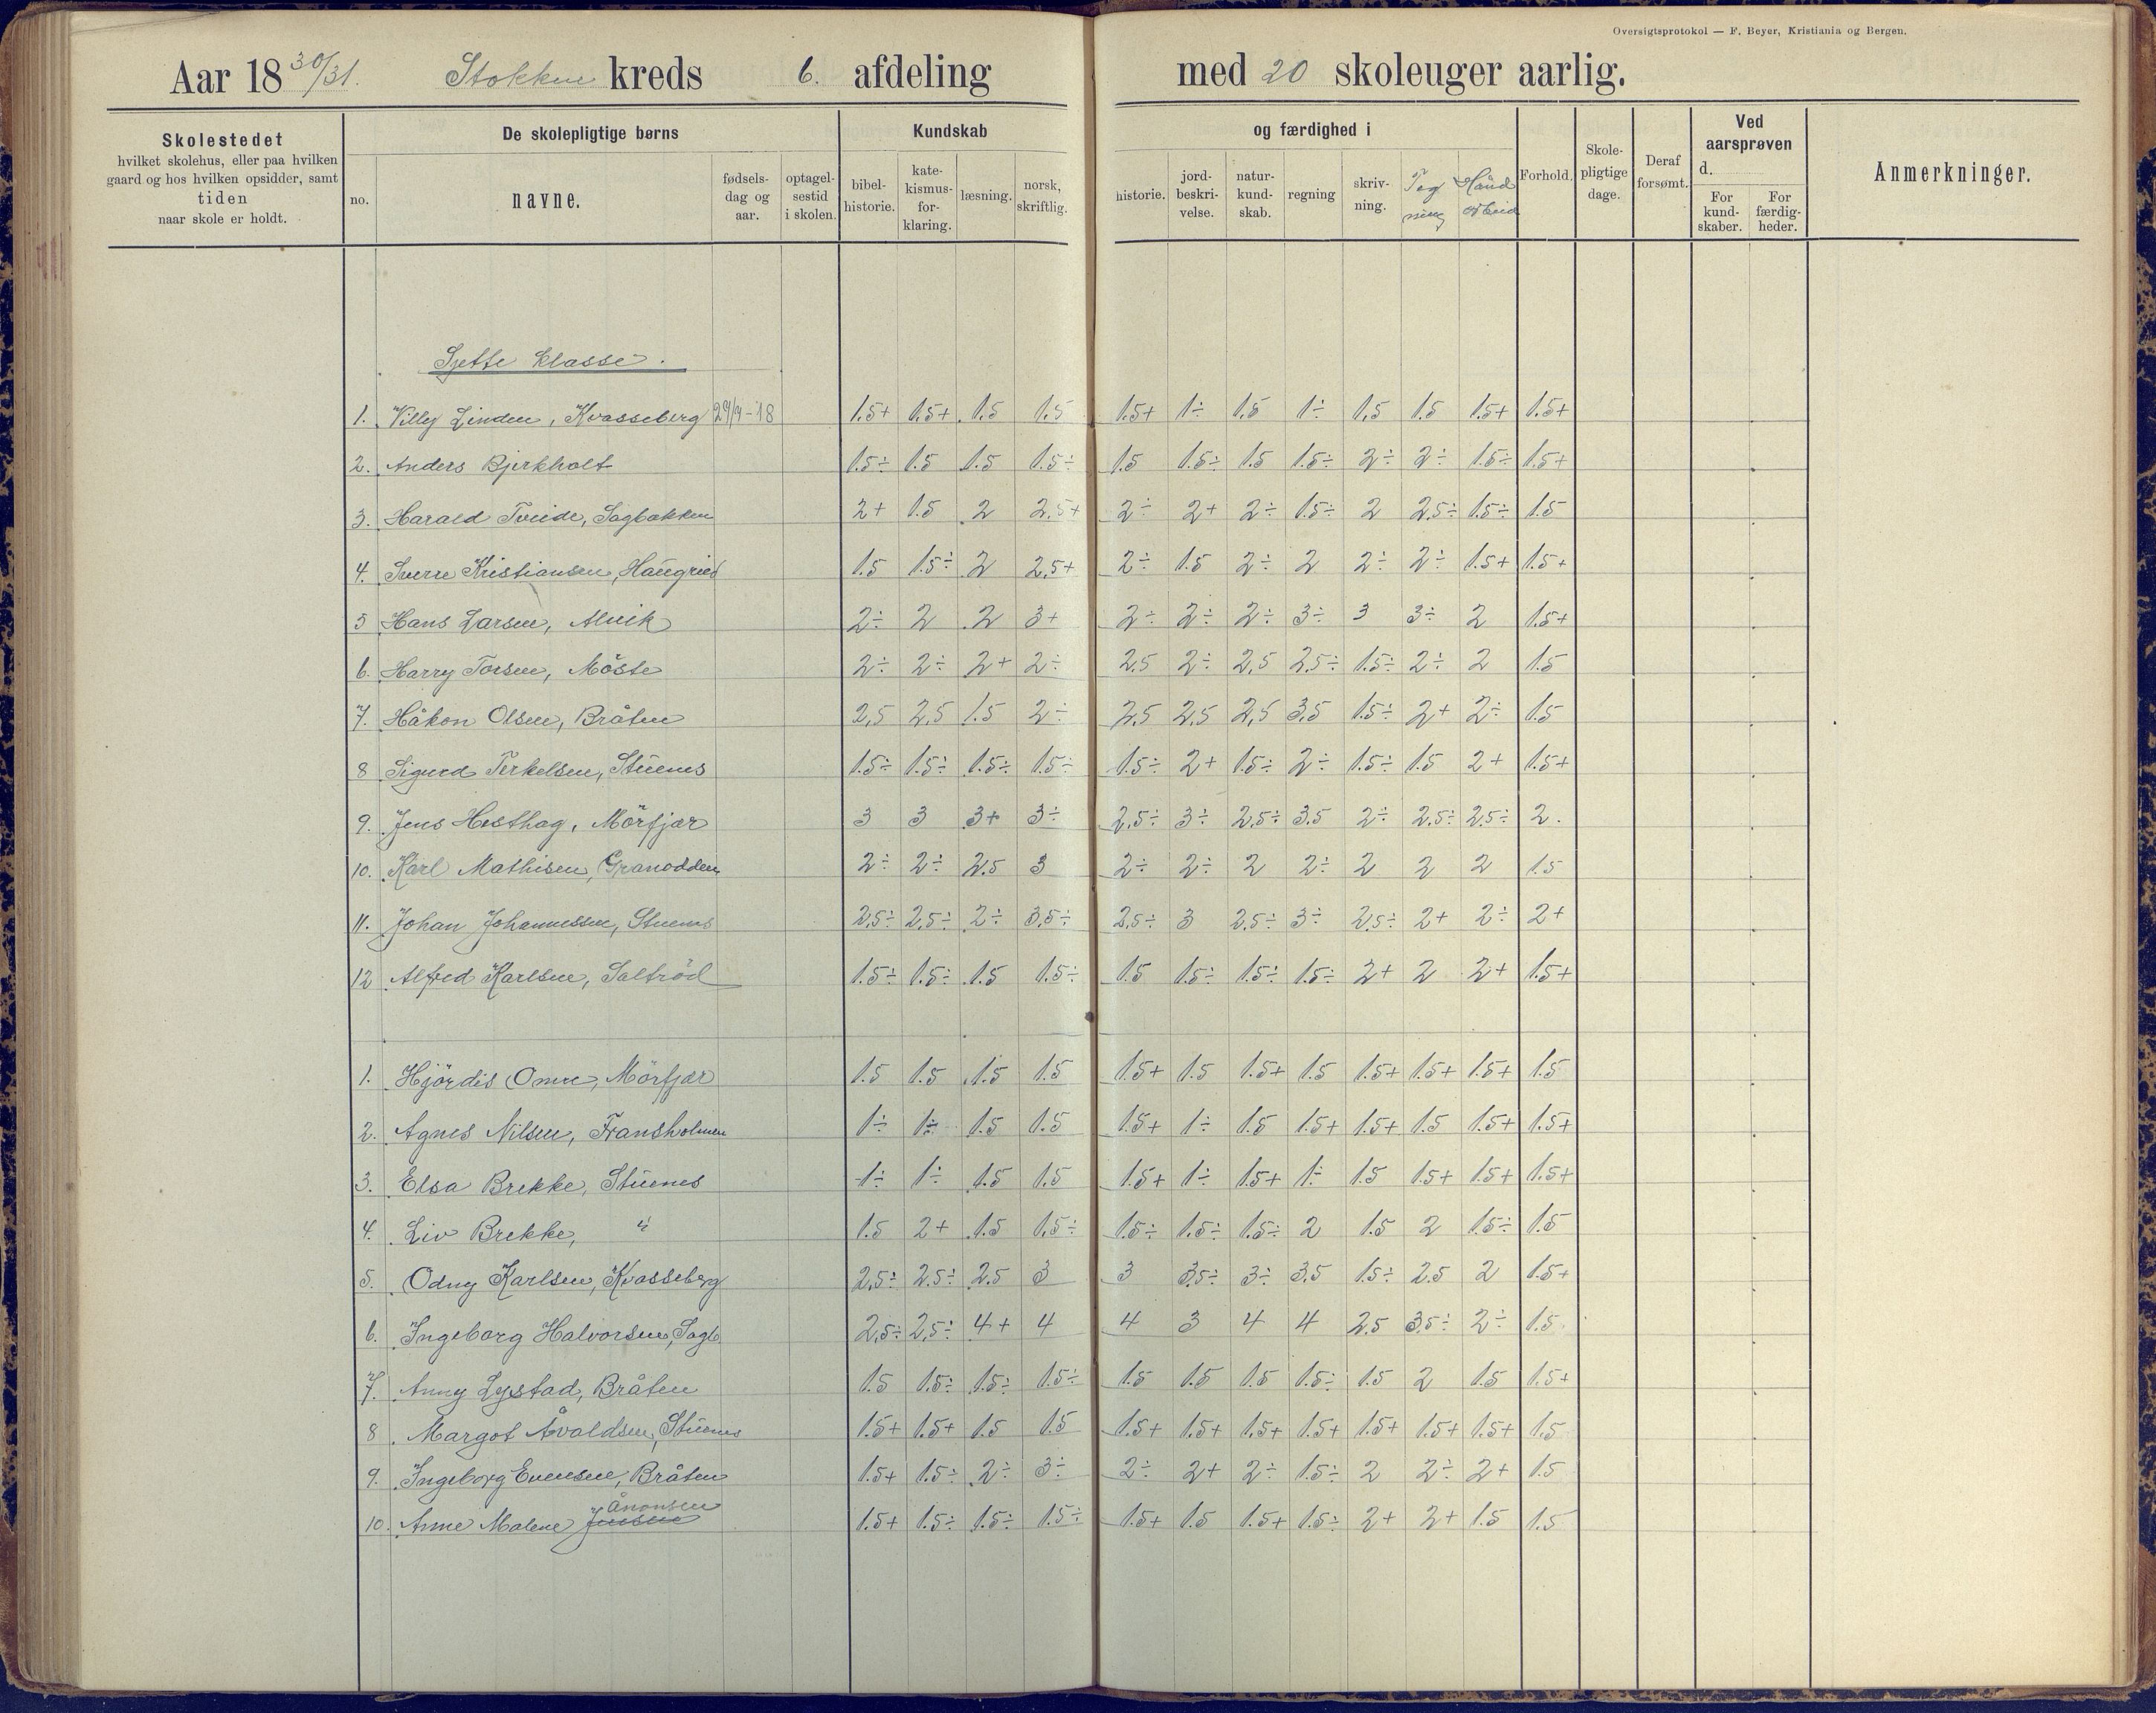 Oversigtsprotokol — F. Beyer, Kristiania og Bergen.
Aar 18 30/31. Stokken kreds 6. afdeling med 20 skoleuger aarlig.
Skolestedet
hvilket skolehus, eller paa hvilken
gaard og hos hvilken opsidder, samt
tiden
naar skole er holdt.
De skolepligtige børns
no.
navne.
fødsels-
dag og
aar.
optagel-
sestid
i skolen.
Kundskab
bibel-
historie.
kate-
kismus-
for-
klaring.
læsning.
norsk,
skriftlig.
og færdighed i
historie.
jord-
beskri-
velse.
natur-
kund-
skab.
regning
skriv-
ning.
Teg
ning
Hånd
arbeid
Forhold.
Skole-
pligtige
dage.
Deraf
forsømt.
Ved
aarsprøven
d.
For
kund-
skaber.
For
færdig-
heder.
Anmerkninger.
Sjette klasse.
1. Villy Linden, Kvasseberg 29/4-18 1.5+ 1.5+ 1.5 1.5 1.5+ 1÷ 1.5 1÷ 1.5 1.5 1.5+ 1.5+
2. Anders Bjerkholt 1.5÷ 1.5 1.5 1.5÷ 1.5 1.5÷ 1.5 1.5÷ 2÷ 2÷ 1.5÷ 1.5+
3. Harald Tveide, Sagbakken 2+ 1.5 2 2.5+ 2÷ 2+ 2÷ 1.5÷ 2 2.5÷ 1.5÷ 1.5
4. Sverre Kristiansen, Haugried 1.5 1.5÷ 2 2,5+ 2÷ 1.5 2÷ 2 2÷ 2÷ 1.5+ 1.5+
5 Hans Larsen, Alvik 2÷ 2 2 3+ 2÷ 2÷ 2÷ 3÷ 3 3÷ 2 1.5+
6. Harry Torsen, Möste 2÷ 2÷ 2+ 2÷ 2,5 2÷ 2,5 2,5÷ 1.5÷ 2÷ 2 1.5
7. Håkon Olsen, Bråten 2,5 2,5 1.5 2÷ 2,5 2,5 2,5 3,5 1.5÷ 2+ 2÷ 1.5
8 Sigurd Terkelsen, Stuenes 1.5÷ 1.5÷ 1.5÷ 1.5÷ 1.5÷ 2+ 1.5÷ 2÷ 1.5÷ 1.5 2+ 1.5+
9. Jens Hesthag, Mörfjær 3 3 3+ 3÷ 2,5÷ 3÷ 2,5÷ 3.5 2÷ 2.5÷ 2.5÷ 2.
10. Karl Mathisen, Granodden 2÷ 2÷ 2.5 3 2÷ 2÷ 2 2÷ 2 2 2 1.5
11. Johan Johannessen, Stuenes 2,5÷ 2,5÷ 2÷ 3,5÷ 2,5÷ 3 2,5÷ 3÷ 2,5÷ 2+ 2÷ 2+
12 Alfred Karlsen, Saltröd 1.5÷ 1.5÷ 1.5 1.5÷ 1.5 1.5÷ 1.5÷ 1.5÷ 2+ 2 2+ 1.5+
1. Hjördis Omre, Mörfjær 1.5 1.5 1.5 1.5 1.5+ 1.5 1.5+ 1.5 1.5+ 1.5+ 1.5+ 1.5
2. Agnes Nilsen, Fransholmen 1÷ 1÷ 1.5 1.5 1.5+ 1÷ 1.5 1.5+ 1.5+ 1.5 1.5+ 1.5+
3. Elsa Brekke, Stuenes 1÷ 1÷ 1.5 1.5 1.5+ 1÷ 1.5+ 1÷ 1.5 1.5+ 1.5+ 1.5+
4. Liv Brekke, " 1.5 2+ 1.5 1.5÷ 1.5÷ 1.5÷ 1.5÷ 2 1.5 2 1.5÷ 1.5
5. Odny Karlsen, Kvasseberg 2,5÷ 2.5÷ 2.5 3 3 3,5÷ 3÷ 3,5 1.5÷ 2.5 2 1.5+
6. Ingeborg Halvorsen, Sagb. 2,5÷ 2,5÷ 4+ 4 4 3 4 4 2.5 3.5÷ 2÷ 1.5
7. Anny Lystad, Bråten 1.5 1.5÷ 1.5÷ 1.5÷ 1.5 1.5 1.5 1.5÷ 1.5 2 1.5 1.5+
8 Margot Åvaldsen, Stuenes 1.5+ 1.5+ 1.5 1.5 1.5+ 1.5+ 1.5+ 1.5+ 1.5+ 1.5+ 1.5+ 1.5
9. Ingeborg Evensen, Bråten 1.5+ 1.5÷ 2÷ 3÷ 2÷ 2+ 2÷ 1.5÷ 2 2÷ 2+ 1.5
Ånonsen
10. Anne Malene Jensen 1.5+ 1.5÷ 1.5÷ 1.5÷ 1.5+ 1.5 1.5+ 1.5÷ 2+ 2+ 1.5 1.5